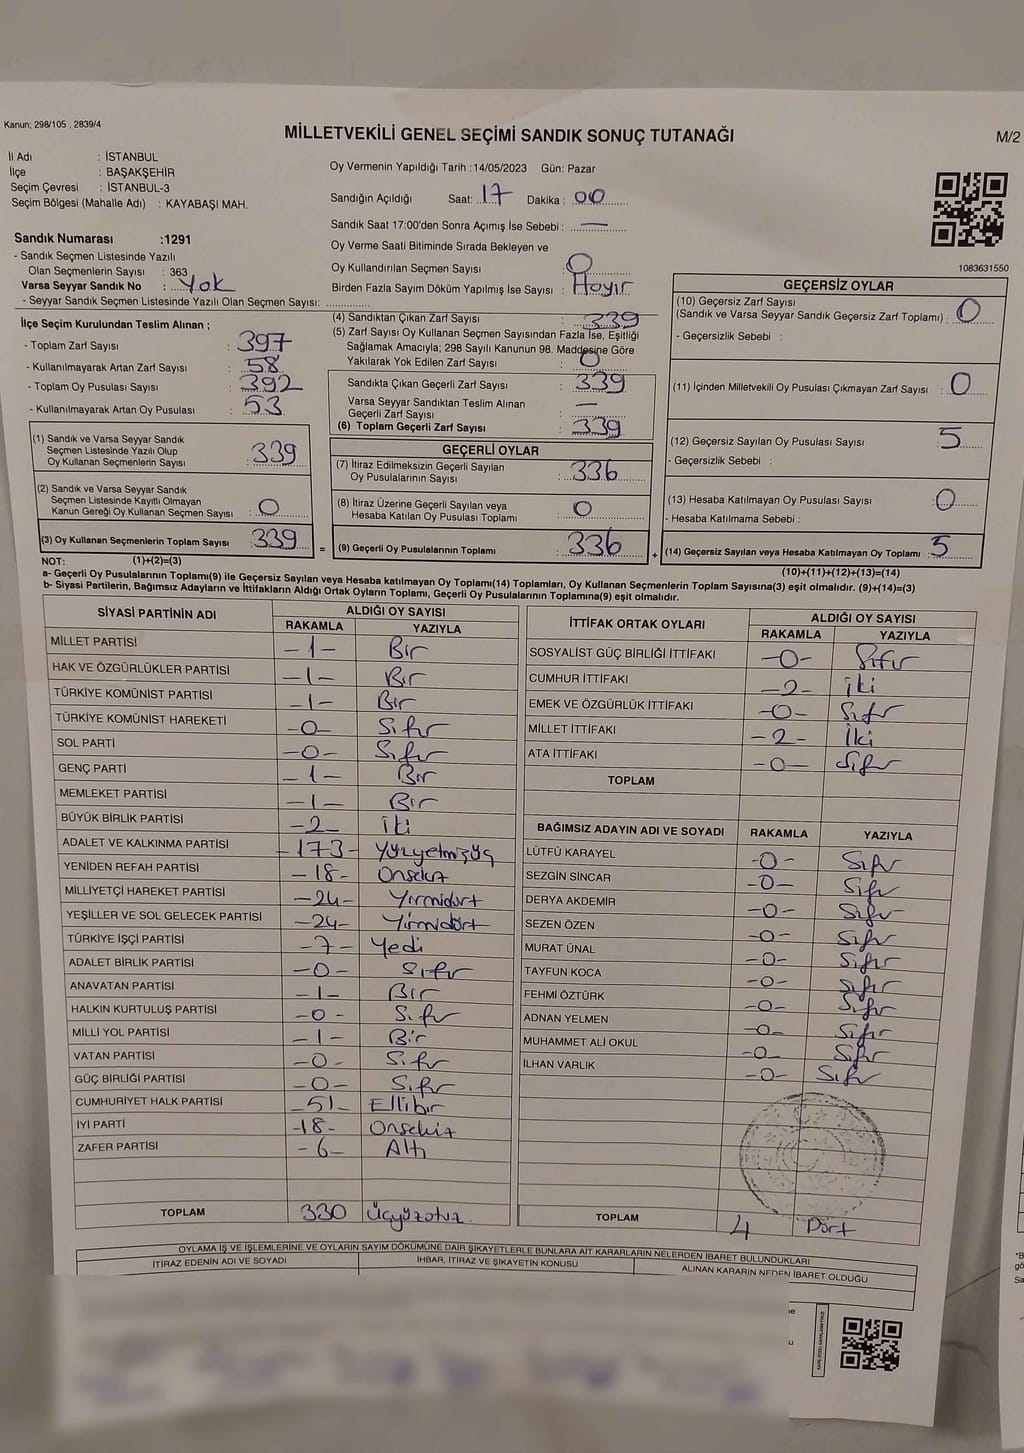 Kanun; 298/105 , 2839/4
MİLLETVEKİLİ GENEL SEÇİMİ SANDIK SONUÇ TUTANAĞI
M/2
İl Adı : İSTANBUL
İlçe : BAŞAKŞEHİR
Seçim Çevresi : İSTANBUL-3
Seçim Bölgesi (Mahalle Adı) : KAYABAŞI MAH.
Oy Vermenin Yapıldığı Tarih :14/05/2023 Gün: Pazar
Sandığın Açıldığı Saat: 17 Dakika : 00
Sandık Saat 17:00'den Sonra Açımış İse Sebebi : —
Oy Verme Saati Bitiminde Sırada Bekleyen ve
Oy Kullandırılan Seçmen Sayısı : 0
Birden Fazla Sayım Döküm Yapılmış İse Sayısı : Hayır
1083631550
Sandık Numarası :1291
- Sandık Seçmen Listesinde Yazılı
Olan Seçmenlerin Sayısı : 363
Varsa Seyyar Sandık No : Yok
- Seyyar Sandık Seçmen Listesinde Yazılı Olan Seçmen Sayısı:
İlçe Seçim Kurulundan Teslim Alınan ;
- Toplam Zarf Sayısı : 397
- Kullanılmayarak Artan Zarf Sayısı : 58
- Toplam Oy Pusulası Sayısı : 392
- Kullanılmayarak Artan Oy Pusulası : 53
(1) Sandık ve Varsa Seyyar Sandık
Seçmen Listesinde Yazılı Olup
Oy Kullanan Seçmenlerin Sayısı : 339
(2) Sandık ve Varsa Seyyar Sandık
Seçmen Listesinde Kayıtlı Olmayan
Kanun Gereği Oy Kullanan Seçmen Sayısı : 0
(3) Oy Kullanan Seçmenlerin Toplam Sayısı : 339
(1)+(2)=(3)
(4) Sandıktan Çıkan Zarf Sayısı : 339
(5) Zarf Sayısı Oy Kullanan Seçmen Sayısından Fazla İse, Eşitliği
Sağlamak Amacıyla; 298 Sayılı Kanunun 98. Maddesine Göre
Yakılarak Yok Edilen Zarf Sayısı : 0
Sandıkta Çıkan Geçerli Zarf Sayısı : 339
Varsa Seyyar Sandıktan Teslim Alınan
Geçerli Zarf Sayısı : —
(6) Toplam Geçerli Zarf Sayısı : 339
GEÇERLİ OYLAR
(7) İtiraz Edilmeksizin Geçerli Sayılan
Oy Pusulalarının Sayısı : 336
(8) İtiraz Üzerine Geçerli Sayılan veya
Hesaba Katılan Oy Pusulası Toplamı : 0
= (9) Geçerli Oy Pusulalarının Toplamı : 336
GEÇERSİZ OYLAR
(10) Geçersiz Zarf Sayısı
(Sandık ve Varsa Seyyar Sandık Geçersiz Zarf Toplamı) : 0
- Geçersizlik Sebebi :
(11) İçinden Milletvekili Oy Pusulası Çıkmayan Zarf Sayısı : 0
(12) Geçersiz Sayılan Oy Pusulası Sayısı : 5
- Geçersizlik Sebebi :
(13) Hesaba Katılmayan Oy Pusulası Sayısı : 0
- Hesaba Katılmama Sebebi :
+ (14) Geçersiz Sayılan veya Hesaba Katılmayan Oy Toplamı : 5
(10)+(11)+(12)+(13)=(14)
NOT:
a- Geçerli Oy Pusulalarının Toplamı(9) ile Geçersiz Sayılan veya Hesaba katılmayan Oy Toplamı(14) Toplamları, Oy Kullanan Seçmenlerin Toplam Sayısına(3) eşit olmalıdır. (9)+(14)=(3)
b- Siyasi Partilerin, Bağımsız Adayların ve İttifakların Aldığı Ortak Oyların Toplamı, Geçerli Oy Pusulalarının Toplamına(9) eşit olmalıdır.
SİYASİ PARTİNİN ADI ALDIĞI OY SAYISI
RAKAMLA YAZIYLA
MİLLET PARTİSİ -1- Bir
HAK VE ÖZGÜRLÜKLER PARTİSİ -1- Bir
TÜRKİYE KOMÜNİST PARTİSİ -1- Bir
TÜRKİYE KOMÜNİST HAREKETİ -0- Sıfır
SOL PARTİ -0- Sıfır
GENÇ PARTİ -1- Bir
MEMLEKET PARTİSİ -1- Bir
BÜYÜK BİRLİK PARTİSİ -2- iki
ADALET VE KALKINMA PARTİSİ -173- yüzyetmişüç
YENİDEN REFAH PARTİSİ -18- Onsekiz
MİLLİYETÇİ HAREKET PARTİSİ -24- Yirmidört
YEŞİLLER VE SOL GELECEK PARTİSİ -24- Yirmidört
TÜRKİYE İŞÇİ PARTİSİ -7- Yedi
ADALET BİRLİK PARTİSİ -0- Sıfır
ANAVATAN PARTİSİ -1- Bir
HALKIN KURTULUŞ PARTİSİ -0- Sıfır
MİLLİ YOL PARTİSİ -1- Bir
VATAN PARTİSİ -0- Sıfır
GÜÇ BİRLİĞİ PARTİSİ -0- Sıfır
CUMHURİYET HALK PARTİSİ -51- Ellibir
İYİ PARTİ -18- Onsekiz
ZAFER PARTİSİ -6- Altı
TOPLAM 330 Üçyüzotuz
İTTİFAK ORTAK OYLARI ALDIĞI OY SAYISI
RAKAMLA YAZIYLA
SOSYALİST GÜÇ BİRLİĞİ İTTİFAKI -0- Sıfır
CUMHUR İTTİFAKI -2- iki
EMEK VE ÖZGÜRLÜK İTTİFAKI -0- Sıfır
MİLLET İTTİFAKI -2- İki
ATA İTTİFAKI -0- Sıfır
TOPLAM
BAĞIMSIZ ADAYIN ADI VE SOYADI RAKAMLA YAZIYLA
LÜTFÜ KARAYEL -0- Sıfır
SEZGİN SİNCAR -0- Sıfır
DERYA AKDEMİR -0- Sıfır
SEZEN ÖZEN -0- Sıfır
MURAT ÜNAL -0- Sıfır
TAYFUN KOCA -0- Sıfır
FEHMİ ÖZTÜRK -0- Sıfır
ADNAN YELMEN -0- Sıfır
MUHAMMET ALİ OKUL -0- Sıfır
İLHAN VARLIK -0- Sıfır
TOPLAM 4 Dört
OYLAMA İŞ VE İŞLEMLERİNE VE OYLARIN SAYIM DÖKÜMÜNE DAİR ŞİKAYETLERLE BUNLARA AİT KARARLARIN NELERDEN İBARET BULUNDUKLARI
İTİRAZ EDENİN ADI VE SOYADI İHBAR, İTİRAZ VE ŞİKAYETİN KONUSU ALINAN KARARIN NEDEN İBARET OLDUĞU